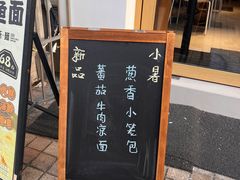 小暑
葱香小笼包
新品
蕃茄牛肉凉面
面
68